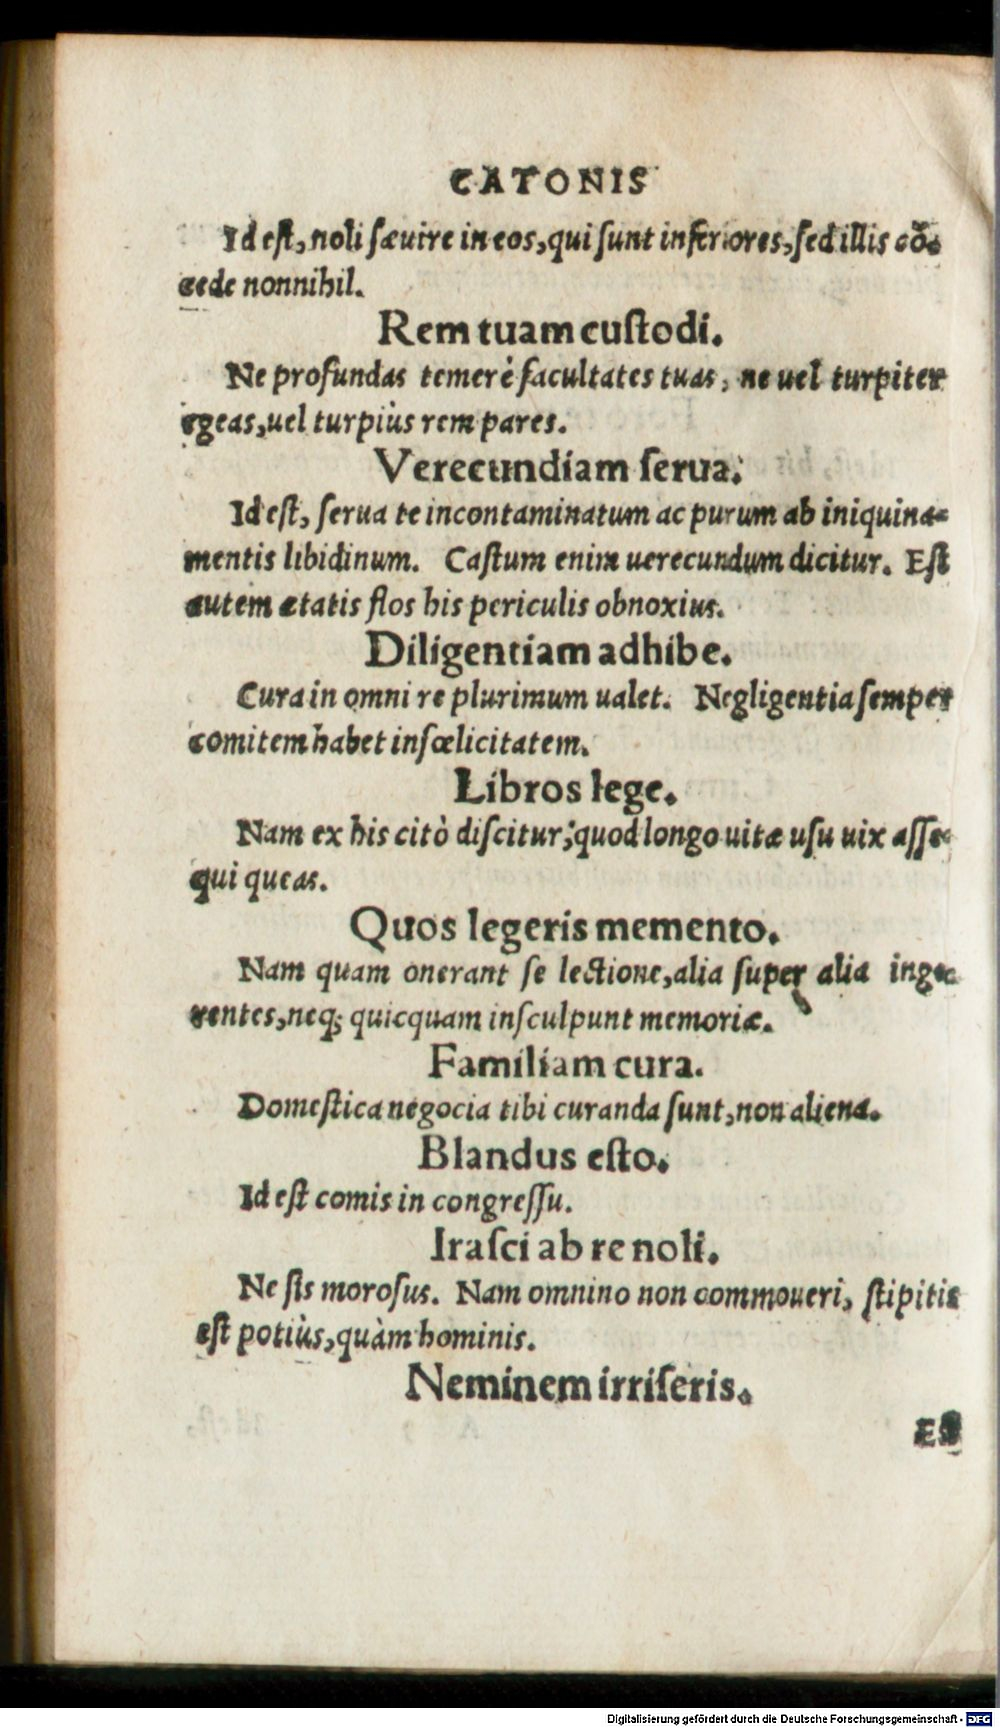 CATONIS
Id est, noli sæuire in eos, qui sunt inferiores, sed illis cõ-
cede nonnihil.
Rem tuam custodi.
Ne profundas temerè facultates tuas, ne uel turpiter
egeas, uel turpiùs rem pares.
Verecundiam serua.
Id est, serua te incontaminatum ac purum ab iniquina-
mentis libidinum. Castum enim uerecundum dicitur. Est
autem ætatis flos his periculis obnoxius.
Diligentiam adhibe.
Cura in omni re plurimum ualet. Negligentia semper
comitem habet infœlicitatem.
Libros lege.
Nam ex his citò discitur, quod longo uitæ usu uix asse-
qui queas.
Quos legeris memento.
Nam quam onerant se lectione, alia super alia inge-
rentes, neq; quicquam insculpunt memoriæ.
Familiam cura.
Domestica negocia tibi curanda sunt, non aliena.
Blandus esto.
Id est comis in congressu.
Irasci ab re noli.
Ne sis morosus. Nam omnino non commoueri, stipitis
est potiùs, quàm hominis.
Neminem irriseris.
Digitalisierung gefördert durch die Deutsche Forschungsgemeinschaft - DFG